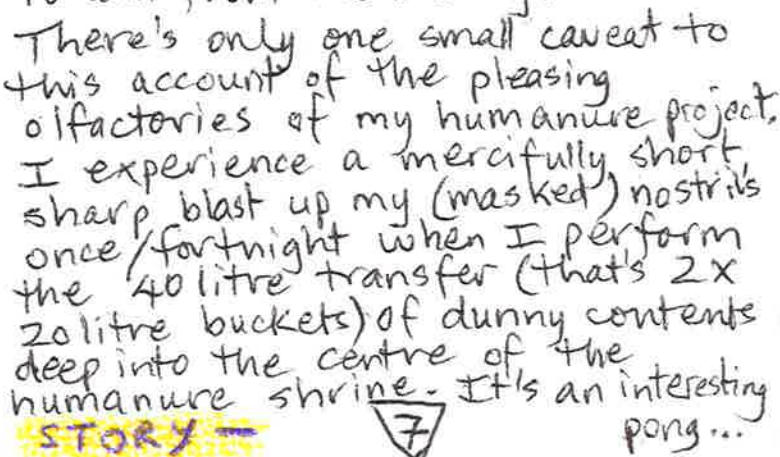 There's only one small caveat to
this account of the pleasing
olfactories of my humanure project.
I experience a mercifully short,
sharp blast up my (masked) nostrils
once/fortnight when I perform
the 40 litre transfer (that's 2x
20 litre buckets) of dunny contents
deep into the centre of the
humanure shrine. It's an interesting
STORY — 7 pong...